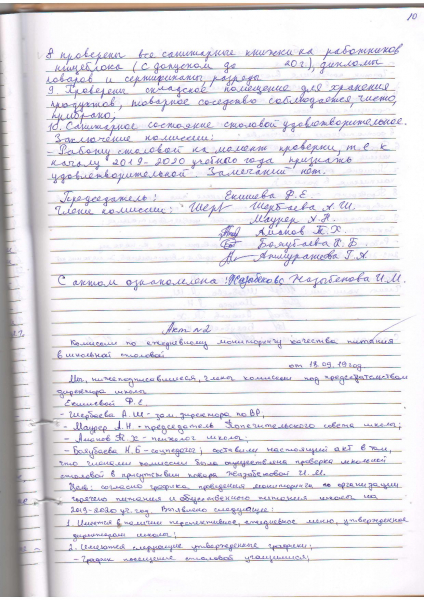 10
8 проверены все санитарные книжки на работников
пищеблока (с допуском до 20 г), дипломы
поваров и сертификаты, разряды
9. Проверены складское помещение для хранения
продуктов, товарное соседство соблюдается чисто,
прибрано,
10. Санитарное состояние столовой удовлетворительное.
Заключение комиссии:
Работу столовой на момент проверки, т.е к
началу 2019-2020 учебного года признать
удовлетворительной. Замечаний нет.
Председатель: Екишева Ф.Е
Члены комиссии: Шербаева А.Ш.
Маурер А.Н.
Аманов Т.Х
Болубаева К.Б.
Г.А
С актом ознакомлена: Назыбекова И.М.
Акт №2
Комиссии по ежедневному мониторингу качества питания
в школьной столовой
от 18.09.19 год
Мы, нижеподписавшиеся, члены комиссии под председательством
директора школы
Екишевой Ф.Е.
- Шербаева А.Ш - зам. директора по ВР,
- Маурер А.Н. - председатель Попечительского совета школы;
- Аманов Т.Х - психолог школы;
- Болубаева К.Б - соцпедагог; составили настоящий акт в том,
что членами комиссии была осуществлена проверка школьной
столовой в присутствии повара Назыбековой И.М.
Цель: согласно графика проведения мониторинга по организации
горячего питания и общественного питания школы на
2019-2020 уч. год. Выявлено следующее:
1. Имеется в наличии перспективное, ежедневное меню, утвержденное
директором школы;
2. Имеются следующие утвержденные графики;
- График посещения столовой учащимися;